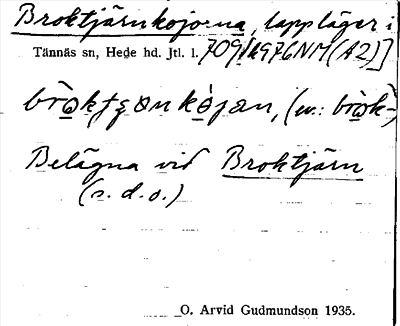 Broktjärnkojorna, lappläger i
Tännäs sn, Hede hd. Jtl. l. 709/1976NM(A2)]
Belägna vid Broktjärn
(s.d.o.)
O. Arvid Gudmundson 1935.